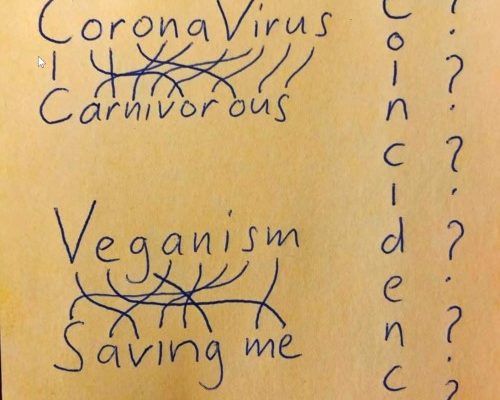 CoronaVirus
Carnivorous
Veganism
Saving me
Coincidenc
? ? ? ? ?